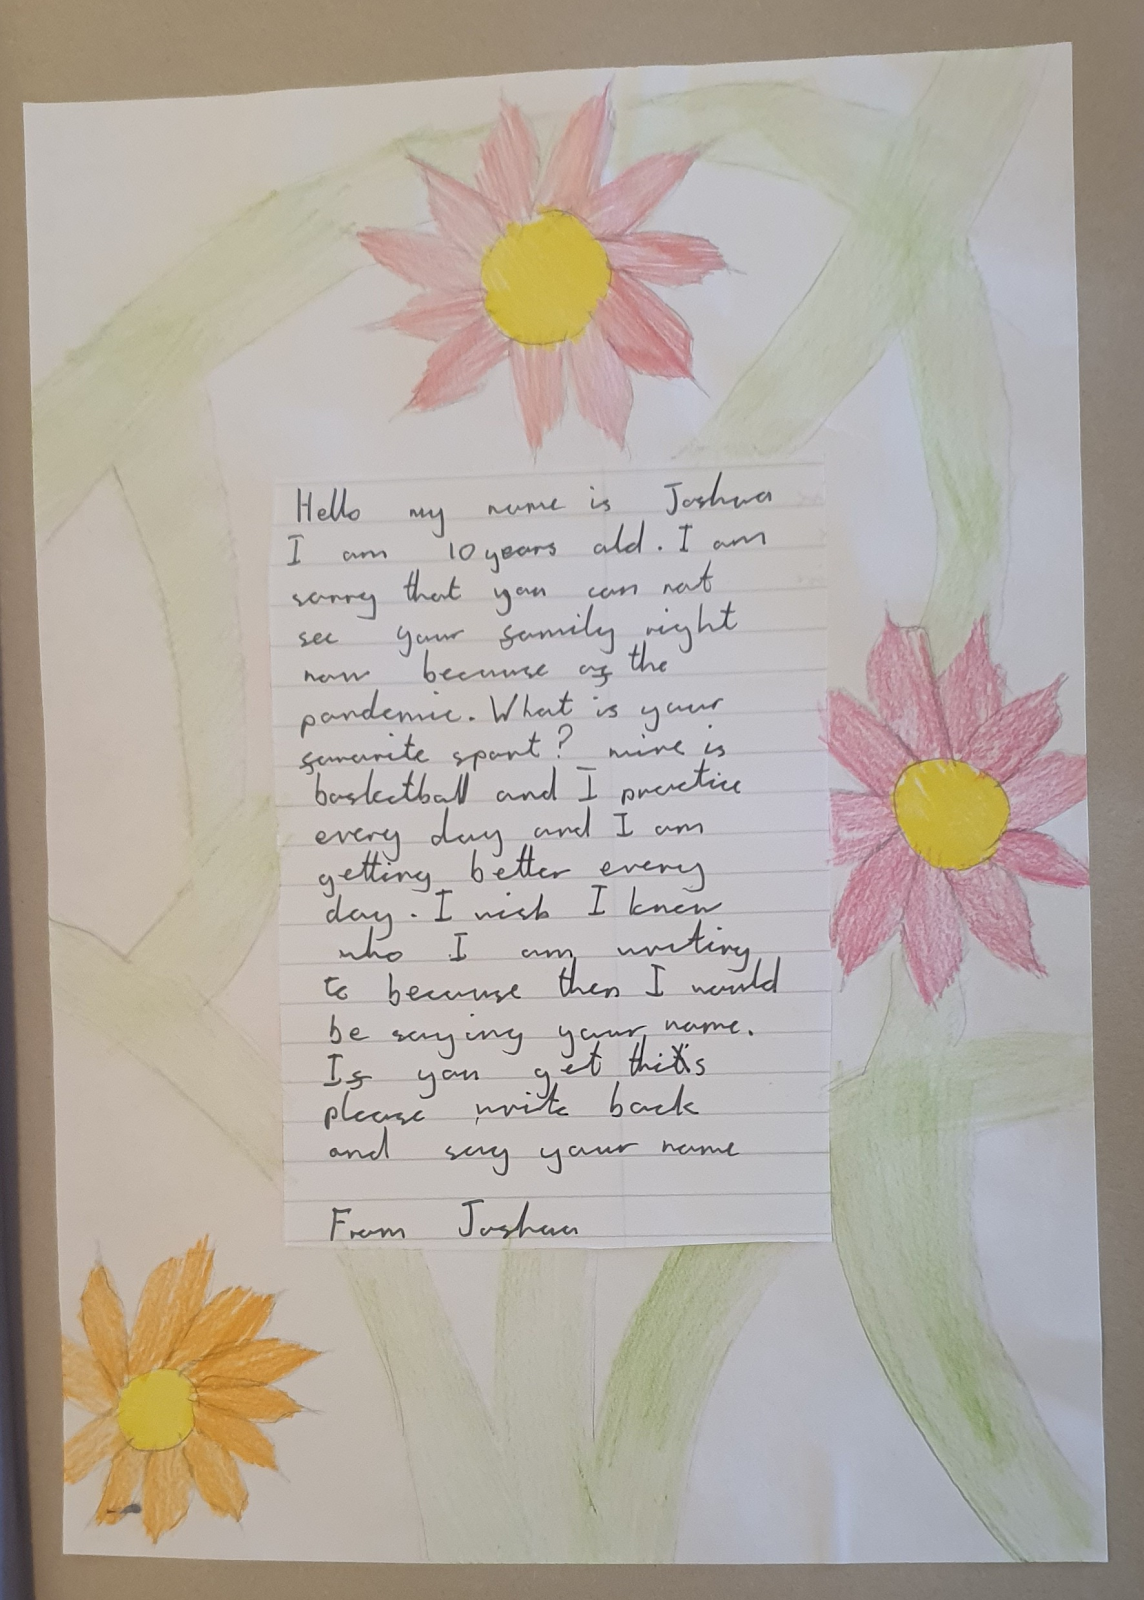 Hello my name is Joshua
I am 10 years old. I am
sorry that you can not
see your family right
now because of the
pandemic. What is your
favourite sport? mine is
basketball and I practice
every day and I am
getting better every
day. I wish I knew
who I am writing
to because then I would
be saying your name.
If you get this
please write back
and say your name
From Joshua